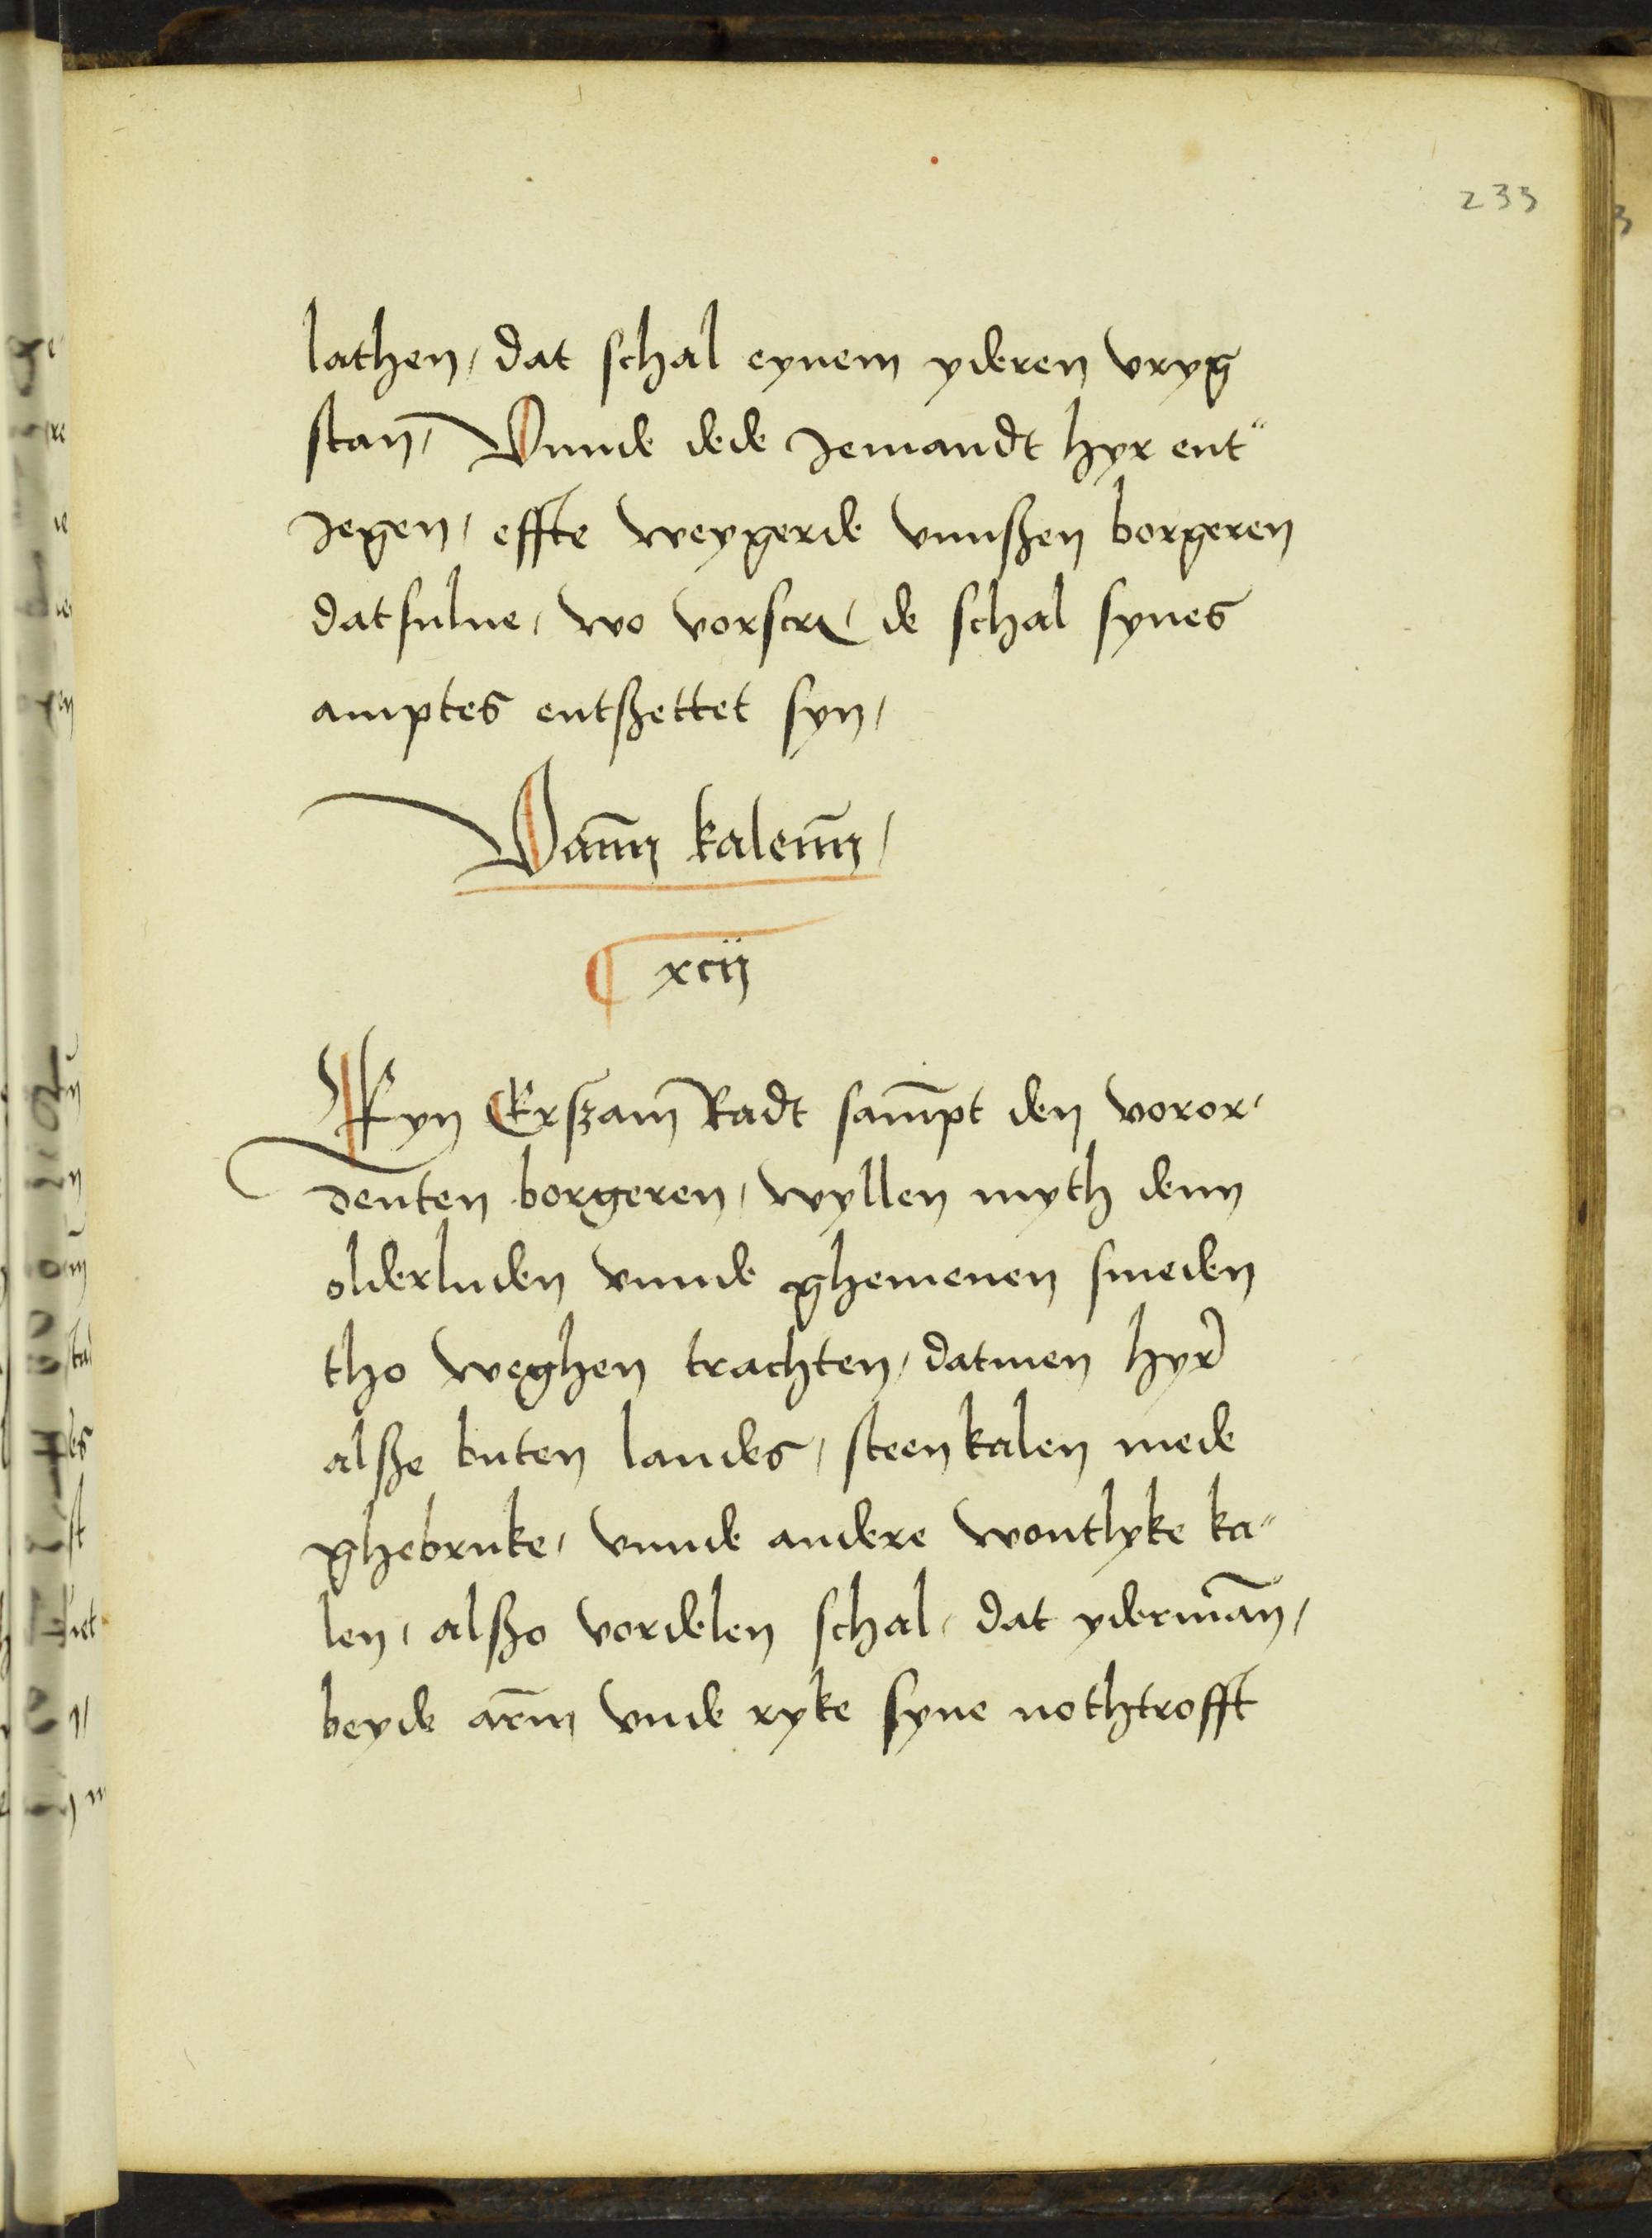 233
lathen, dat schal eynem yderen vryg
stan̄, Vnnde dede Jemandt hyr ent"
Jegen, effte weygerde vnnßen borgeren
datsulue, wo vorscr, de schal synes
amptes entßettet syn,
Vann̄ kalenn̄,
xcij
Eyn Erßam̄ Radt sam̄pt den voror,
den̄ten borgeren, wyllen myth denn
olderluden vnnde ghemenen smeden
tho weghen trachten, datmen hyr
alße buten landes, steenkalen mede
ghebruke, vnnde andere wontlyke ka"
len, alßo vordelen schal, dat ydermān,
beyde ar̄m vnde ryke syne nothtrofft